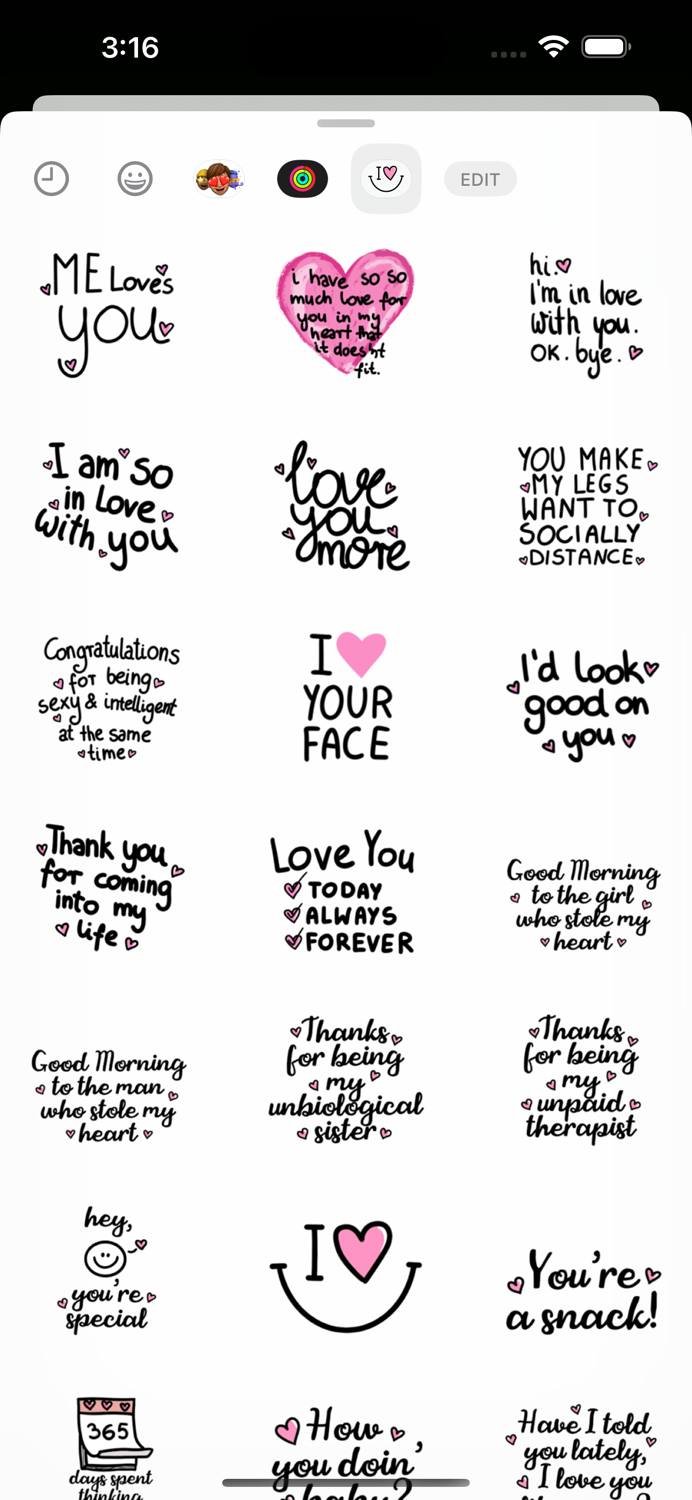 3:16
I
EDIT
ME Loves
you
i have so so
much love for
you in my
heart that
it does'nt
fit.
hi.
I'm in love
with you.
OK. bye.
I am so
in Love
with you
love
you
more
YOU MAKE
MY LEGS
WANT TO
SOCIALLY
DISTANCE
Congratulations
for being
sexy & intelligent
at the same
time
I
YOUR
FACE
I'd look
good on
you
Thank you
for coming
into my
life
Love You
TODAY
ALWAYS
FOREVER
Good Morning
to the girl
who stole my
heart
Good Morning
to the man
who stole my
heart
Thanks
for being
my
unbiological
sister
Thanks
for being
my
unpaid
therapist
hey,
you're
special
I
You're
a snack!
365
days spent
thinking
How
you doin'
baby?
Have I told
you lately,
I love you